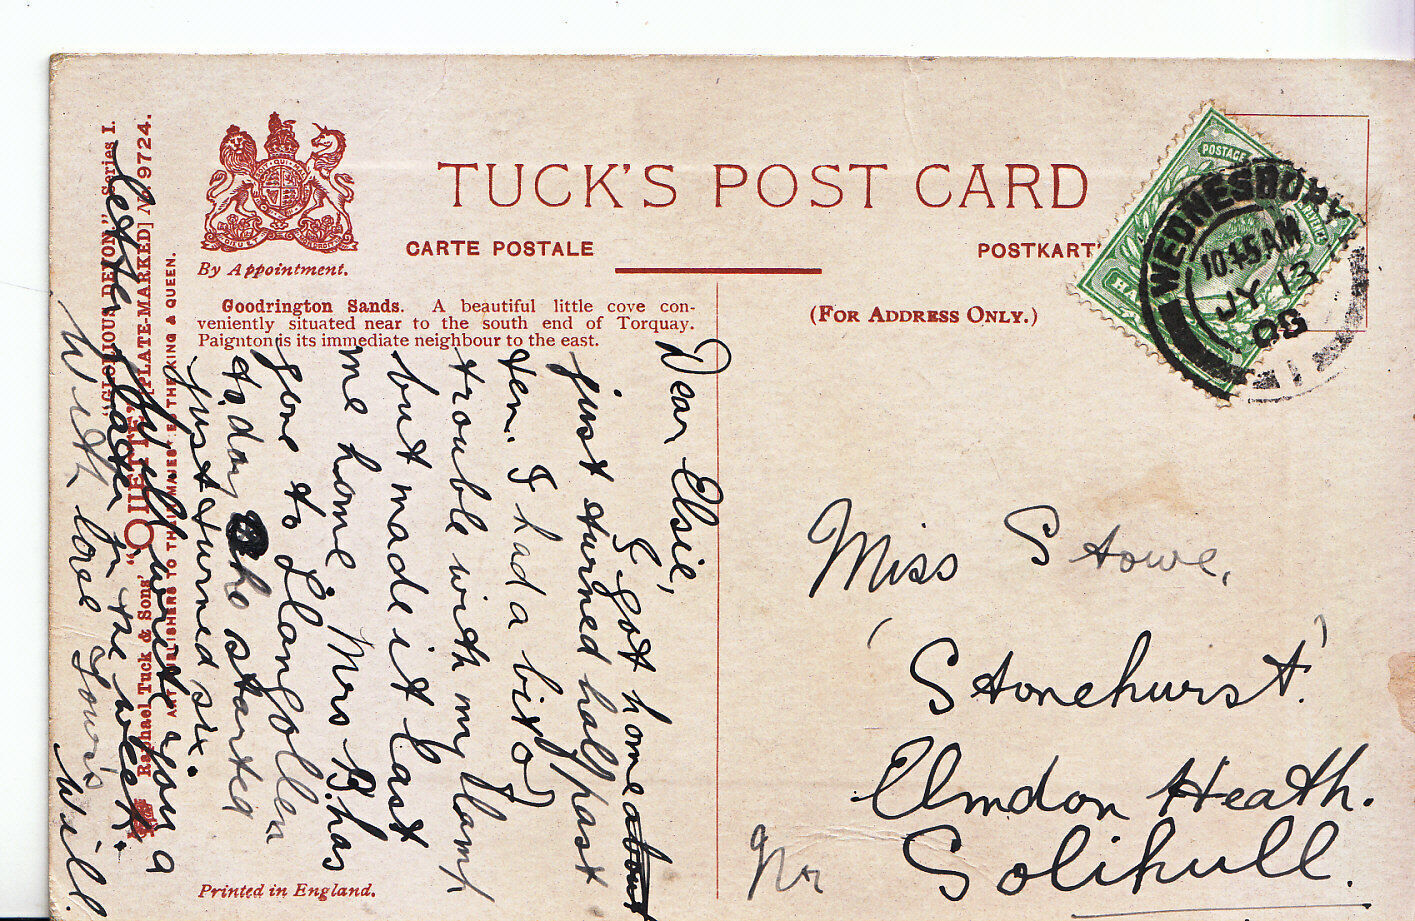 TUCK'S POST CARD
CARTE POSTALE
POSTKART
By Appointment.
(FOR ADDRESS ONLY.)
Goodrington Sands. A beautiful little cove con-
veniently situated near to the south end of Torquay.
Paignton is its immediate neighbour to the east.
WEDNESBURY
10.45 AM
JY 13
POSTAGE
Dear Elsie,
I got home about
just turned half past
ten. I had a bit of
trouble with my lamp
but made it last
me home. Mrs B. has
gone to Llangollen
to day who started
just turned six.
I will write you a
letter later in the week.
With love Yours
Will.
Miss Stowe,
'Stonehurst'.
Elmdon Heath.
Nr Solihull.
"GLORIOUS DEVON" Series I.
Raphael Tuck & Sons' "OILETTE," [PLATE-MARKED] No. 9724.
ART PUBLISHERS TO THEIR MAJESTIES THE KING & QUEEN.
Printed in England.